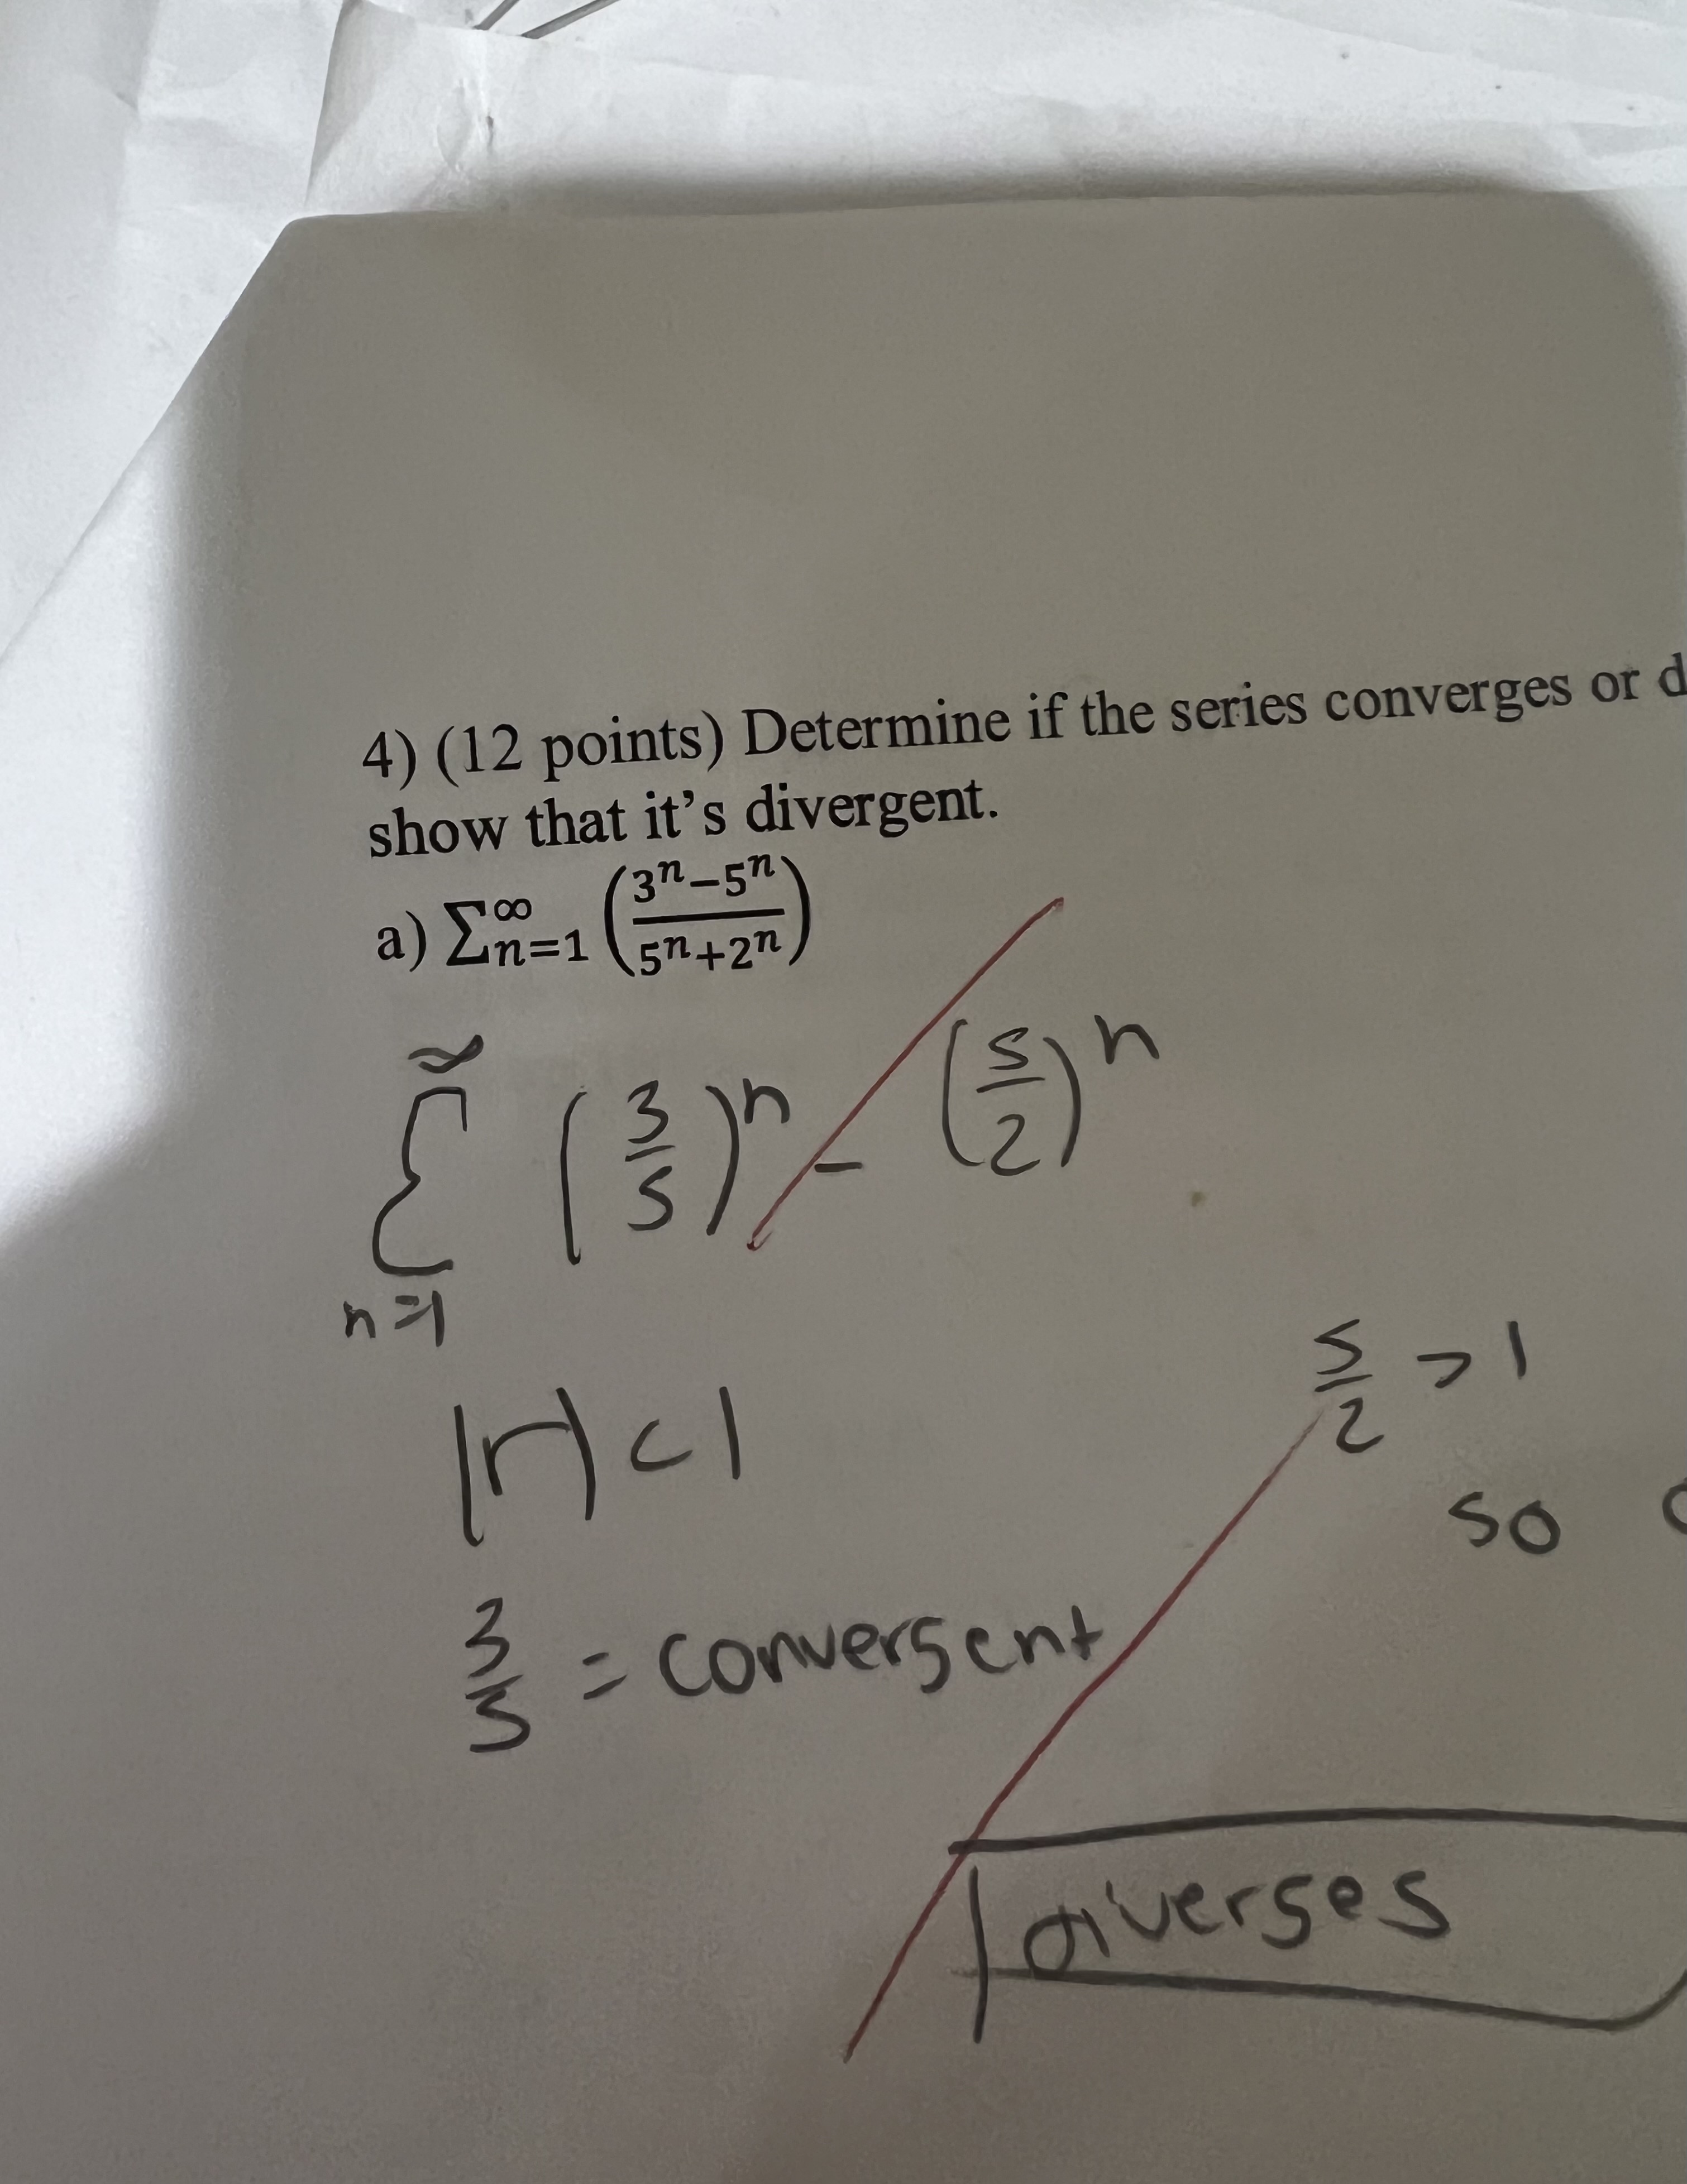 4) (12 points) Determine if the series converges or d
show that it's divergent.
a) ∑_{n=1}^{∞} ((3^n−5^n)/(5^n+2^n))
∑_{n=1}^{∞} (3/5)^n − (5/2)^n
|r| < 1
5/2 > 1
so
3/5 = convergent
diverges